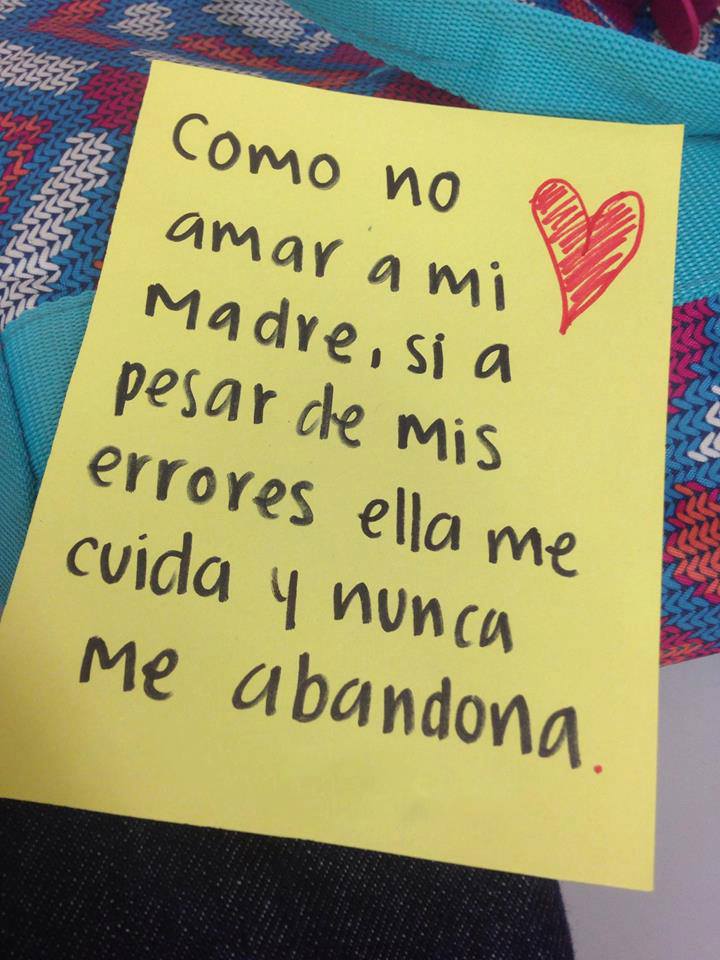 Como no
amar a mi
Madre, si a
pesar de mis
errores ella me
cuida y nunca
me abandona.